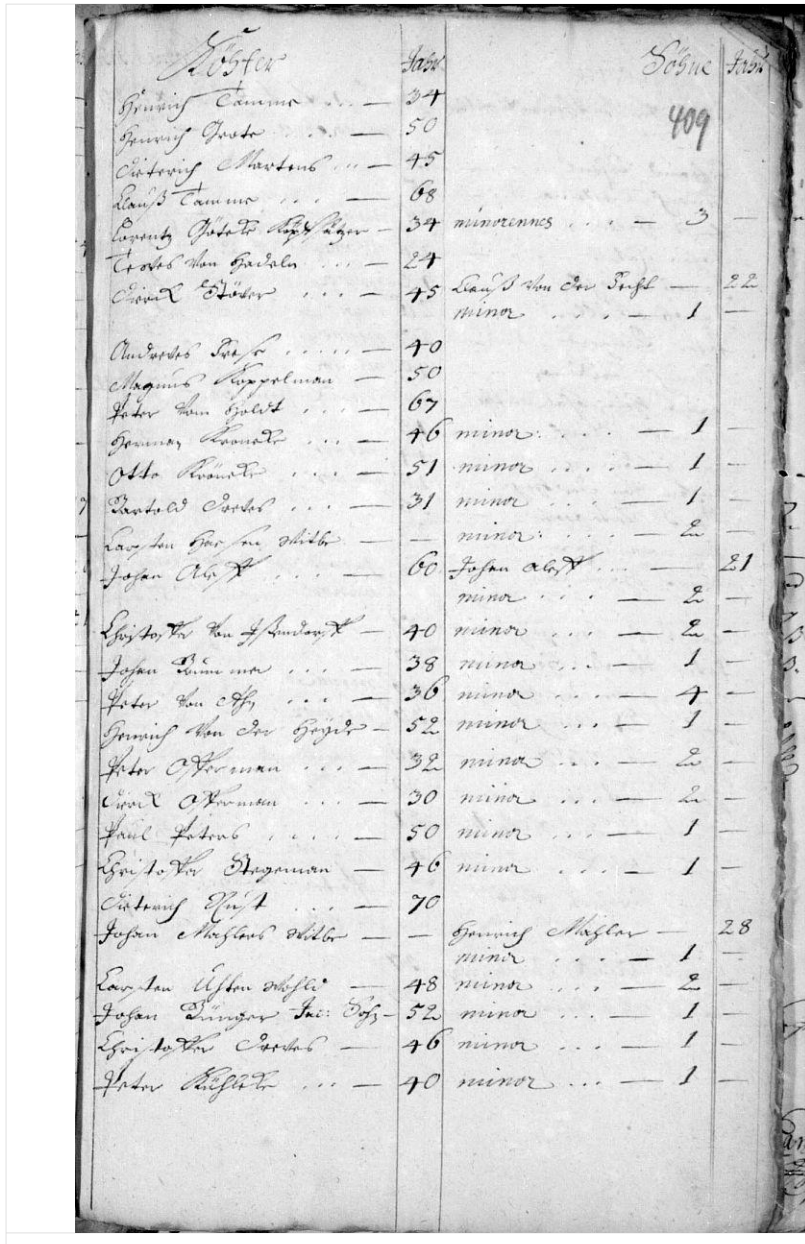 Köhter Jahr Söhne Jahr
409
Henrich Tamme ... — 34
Henrich Grote .. — 50
Dieterich Martens ... — 45
Clauß Tamme ... — 68
Lorentz Göteke — 34 minorennes .... — 3 —
Tewes von Hadeln ... — 24
Dierck Stöver ... — 45 Clauß von der Fecht — 22
minor .... — 1 —
Andreves Frese ..... — 40
Magnus Koppelman — 50
Peter vom Holdt ... — 67
Herman Kroncke ... — 46 minor: ... — 1 —
Otto Kröncke .... — 51 minor .... — 1 —
Bartold Dreves ... — 31 minor .... — 1 —
Carsten Witbe — — minor: ... — 2 —
Johan ... — 60 Johan ... — 21
minor .... — 2 —
Christoffer von — 40 minor ... — 2 —
Johan ... — 38 minor ... — 1 —
Peter von ... — 36 minor ... — 4 —
Henrich von der Heyde — 52 minor ... — 1 —
Peter Osterman ... — 32 minor ... — 2 —
Dierck Osterman ... — 30 minor ... — 2 —
Paul Peters .... — 50 minor ... — 1 —
Christoffer Stegeman — 46 minor ... — 1 —
Dieterich Rust ... — 70
Johan Mahlers Witbe — — Henrich Mahler — 28
minor .... — 1 —
Carsten — 48 minor ... — 2 —
Johan Bünger Jac: Sohn — 52 minor ... — 1 —
Christoffer Dreves — 46 minor ... — 1 —
Peter ... — 40 minor ... — 1 —